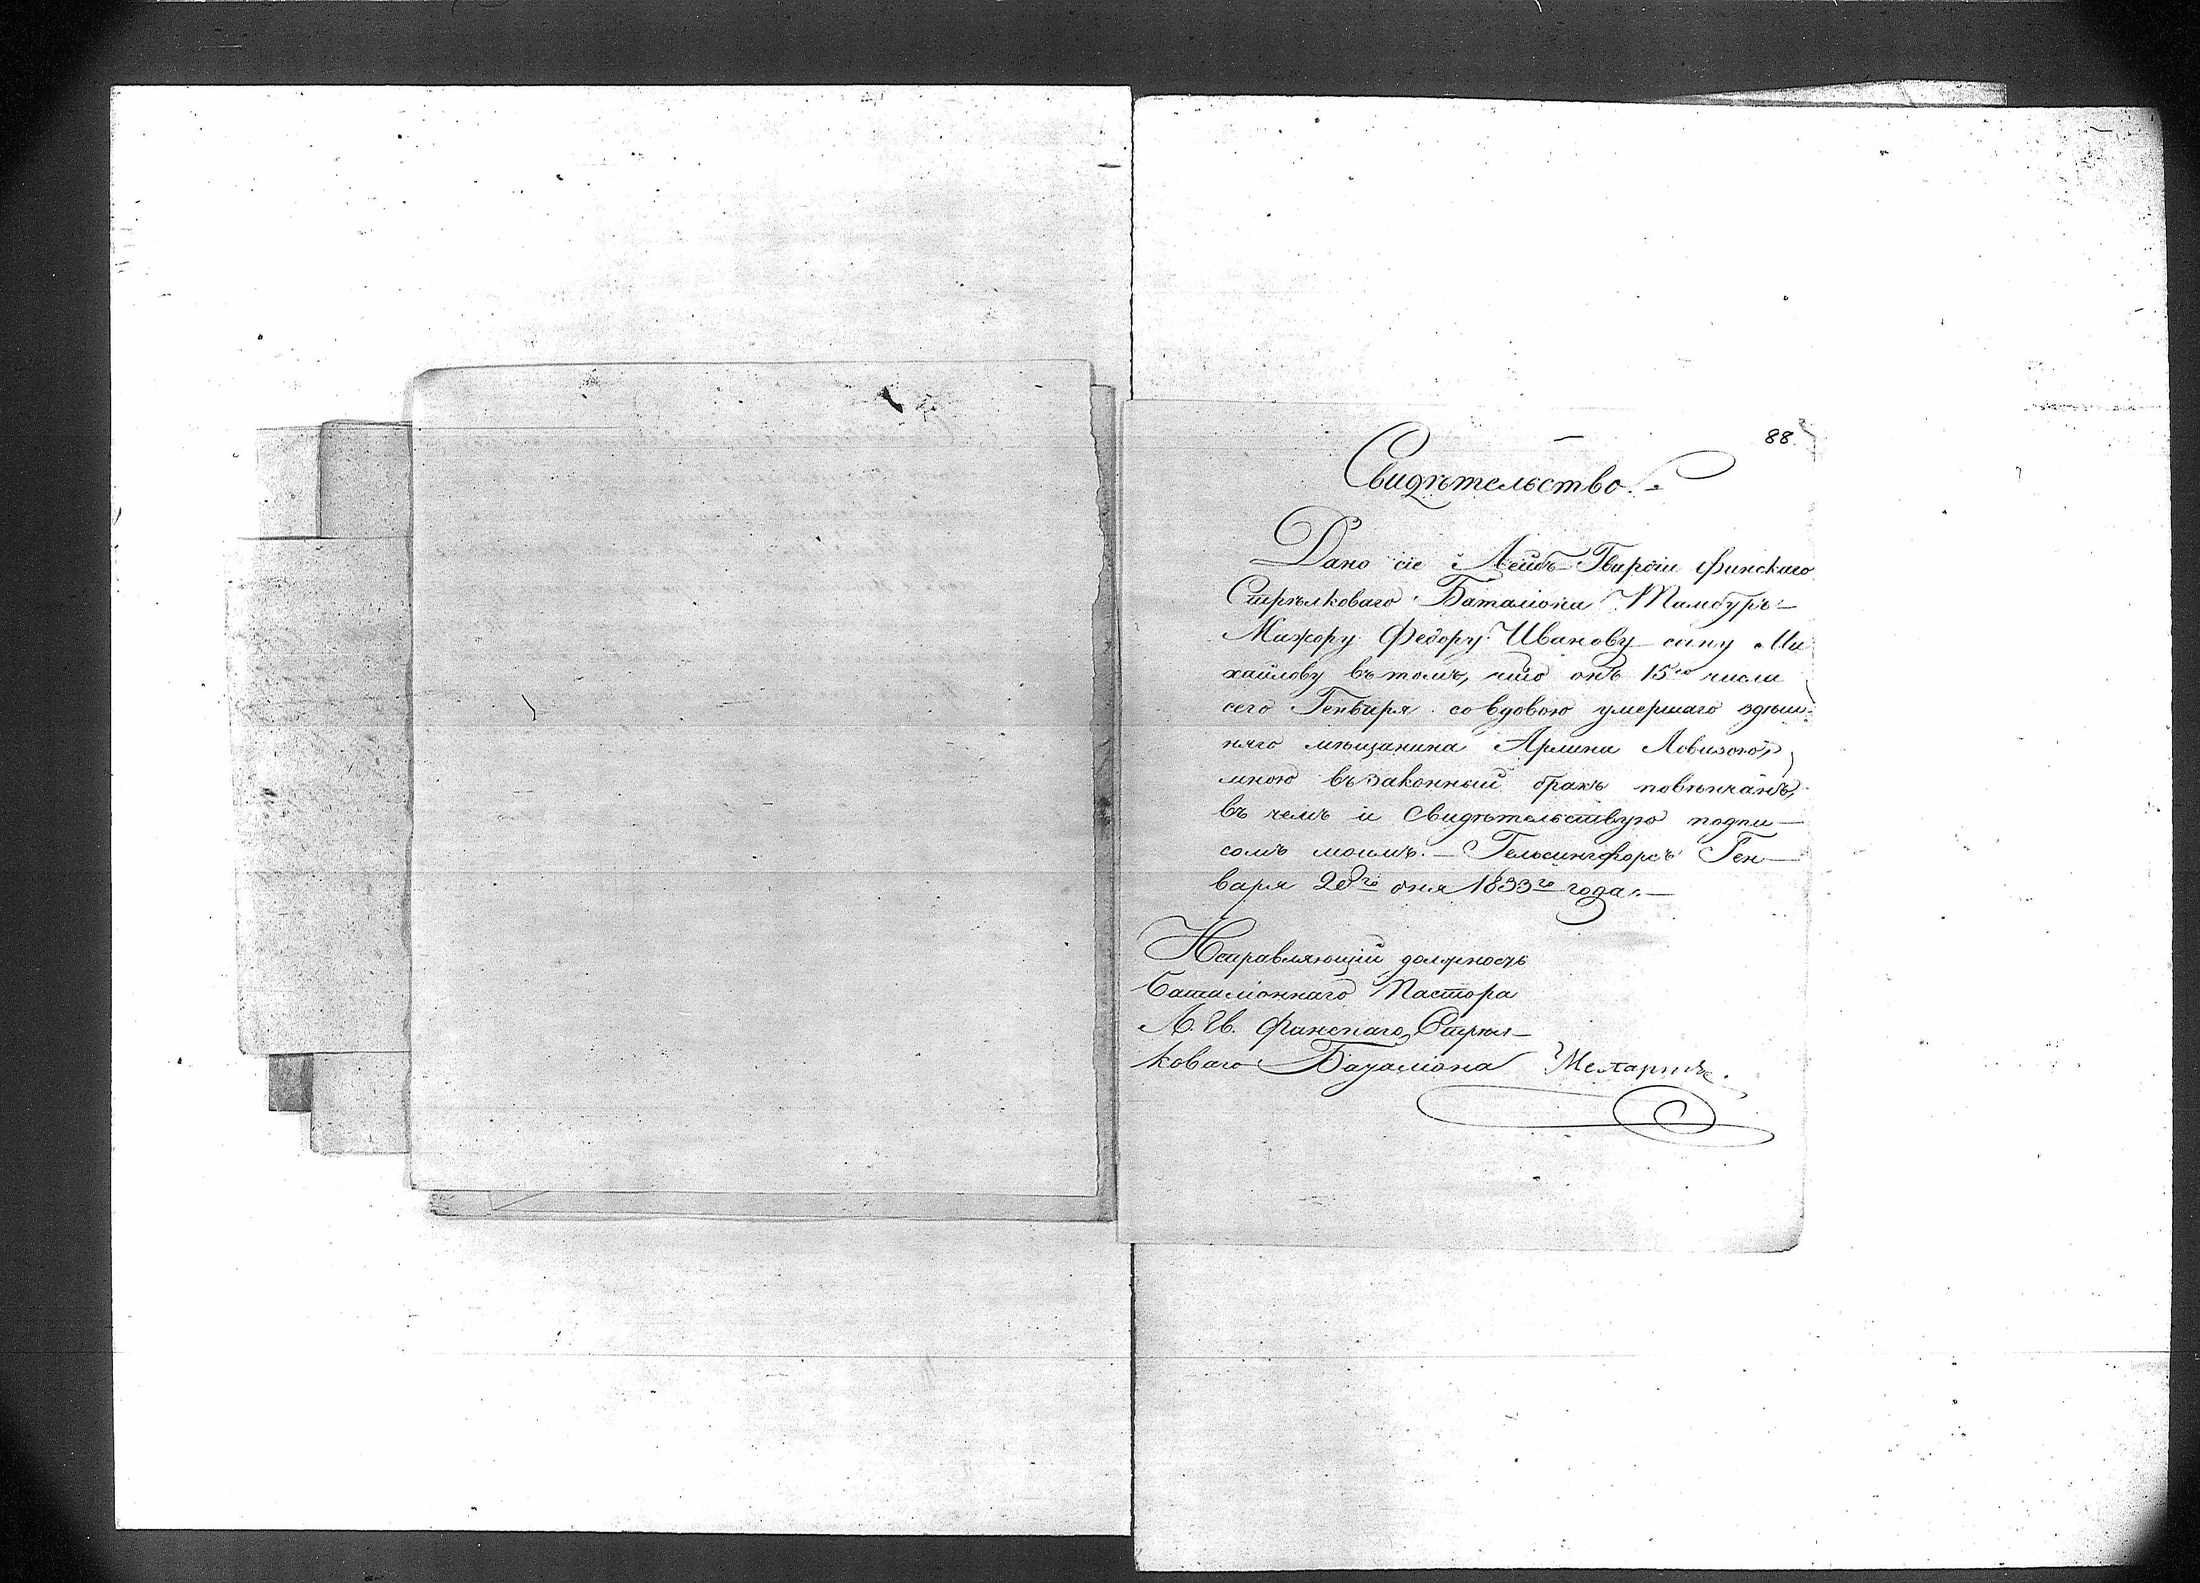 88
Свидѣтельство.
Дано сіе Лейбъ-Гвардіи Финскаго
Стрѣлковаго Баталіона Тамбуръ-
Мажору Федору Иванову сыну Ми
хайлову въ томъ, что онъ 15го числа
сего Генваря со вдовою умершаго здѣш-
няго мѣщанина Армина Ловизою,
мною въ законный бракъ повѣнчанъ,
въ чемъ и свидѣтельствую подпи-
сомъ моимъ. — Гельсингфорсъ Ген-
варя 20го дня 1833го года. —
Исправляющій должность
Баталіоннаго Пастора
Л. Гв. Финскаго Стрѣл-
коваго Баталіона Меларинъ.